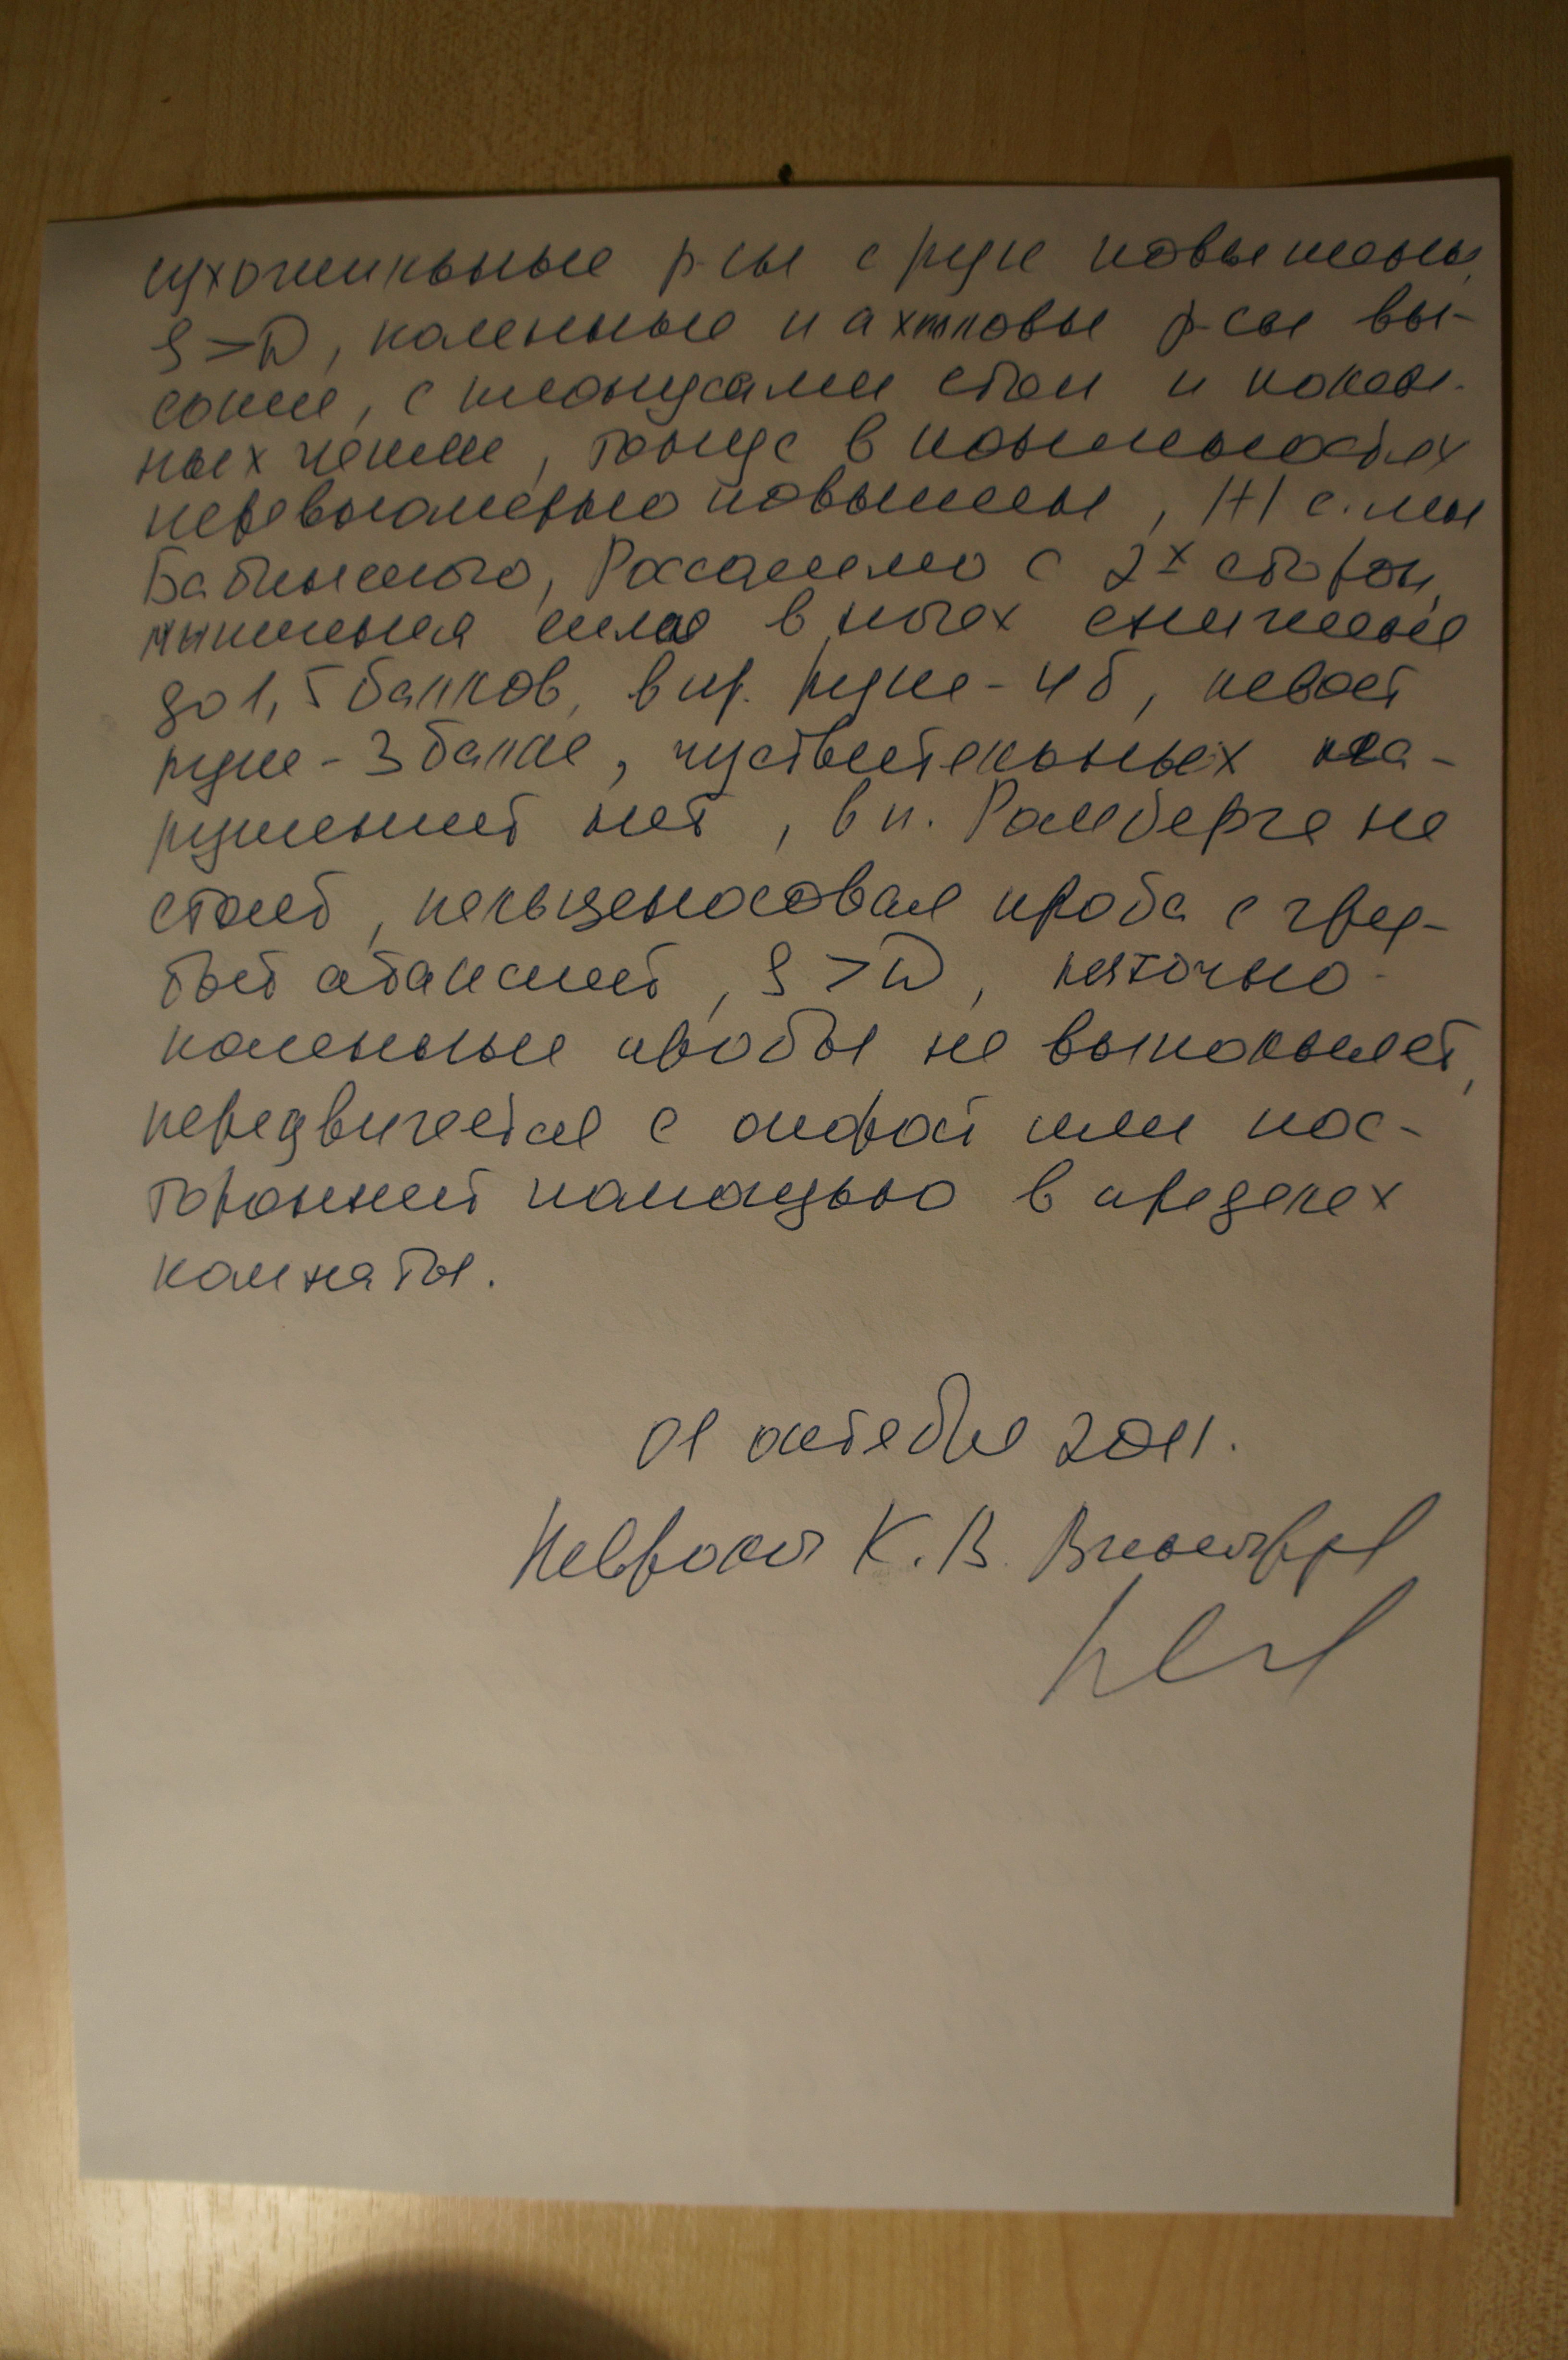 сухожильные р-сы с рук повышены,
S>D, коленные и ахилловы р-сы вы-
сокие, с клонусами стоп и колен-
ных чашек, тонус в конечностях
неравномерно повышен, /+/ с-мы
Бабинского, Россолимо с 2х сторон,
мышечная сила в ногах снижена
до 1,5 баллов, в пр. руке - 4 б, левой
руке - 3 балла, чуствительных на-
рушений нет, в п. Ромберга не
стоит, пальценосовая проба с гру-
бой атаксией, S>D, пяточно-
коленные пробы не выполняет,
передвигается с опорой или пос-
торонней помощью в пределах
комнаты.
01 октября 2011.
Невролог К. В.